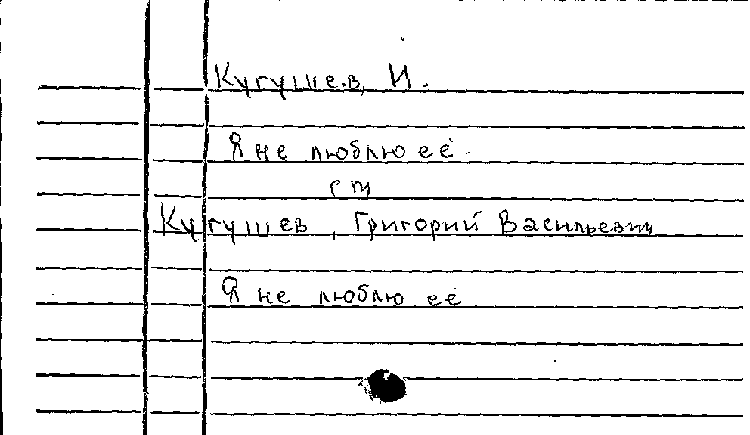 Кугушев, И.
Я не люблю её.
см
Кугушев, Григорий Васильевич
Я не люблю её